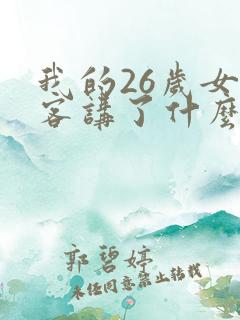 我的26歲女
客講了什麼
郭碧婷
未經同意禁止轉載